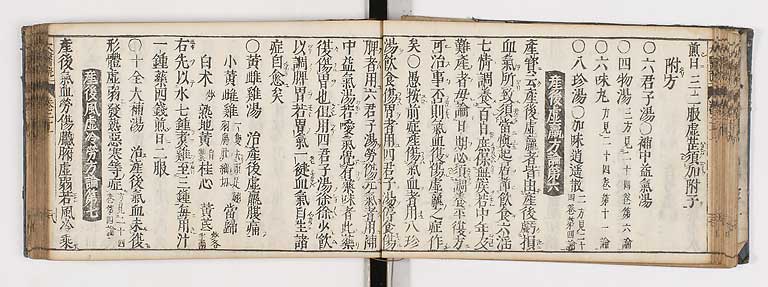 煎日三二服虛甚須加附子
附方
○六君子湯○補中益氣湯
○四物湯三方見二十四卷第六論
○六味丸方見二十四卷第十一論
○八珍湯○加味逍遙散二方見二十四卷第四論
產後虛羸方論第六
產寶云產後虛羸者由產後虧損
血氣所致須當慎起居節飲食六淫
七情調養百日庶保無疾若中年及
難產者毋論日期必須調養平復方
可治事否則氣血復傷虛羸之症作
矣○愚按前症產傷氣血者用八珍
湯飲食傷胃者用四君子湯停食傷
脾者用六君子湯勞傷元氣者用補
中益氣湯若噯氣覺有藥味者此藥
復傷胃也但用四君子湯徐徐少飲
以調脾胃若胃氣一健血氣自生諸
症自愈矣
○黃雌雞湯 治產後虛羸腹痛
小黃雌雞 當歸
白术 熟地黃 桂心 黃芪
右先以水七鍾煮雞至三鍾每用汁
一鍾藥四錢煎日二服
○十全大補湯 治產後氣血未復
形體虛弱發熱惡寒等症方見二十四卷第四論
產後風虛冷勞方論第七
產後氣血勞傷臟腑虛弱若風冷乘